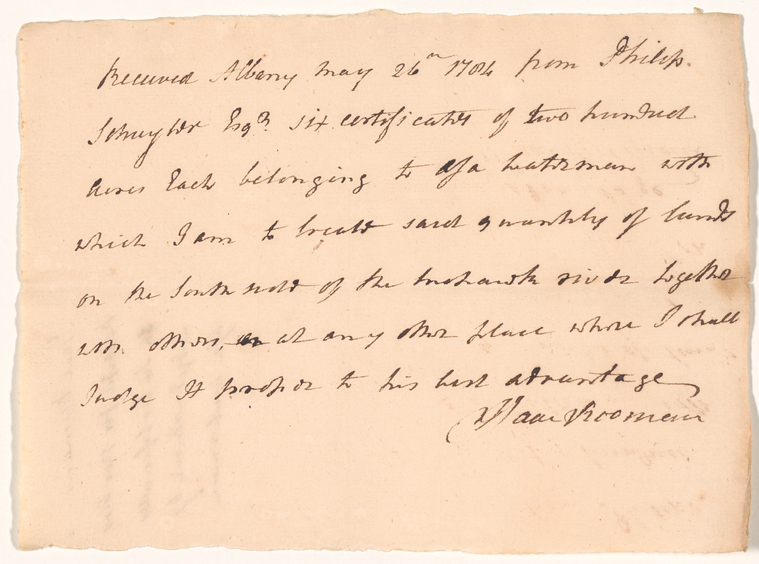 Received Albany May 26th 1784 from Philip
Schuyler Esqr. six certificates of two hundred
Acres Each belonging to Asa waterman with
which I am to locate said quantity of lands
on the South side of the mohawk river together
with others, or at any other place where I shall
Judge It proper to his best advantage
Isaac Vrooman